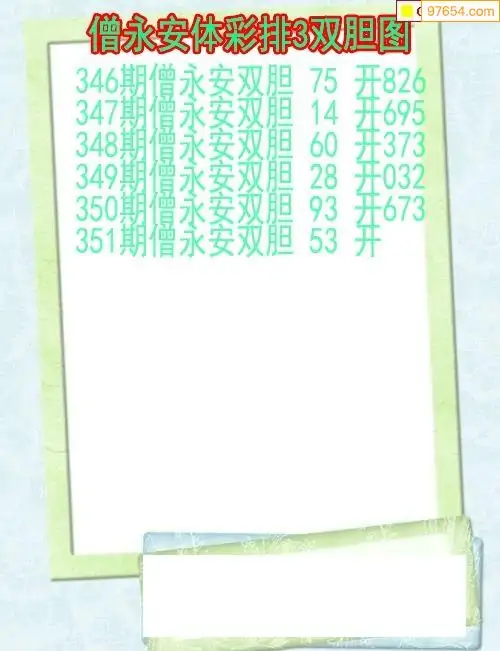 97654.com
僧永安体彩排3双胆图
346期僧永安双胆 75 开826
347期僧永安双胆 14 开695
348期僧永安双胆 60 开373
349期僧永安双胆 28 开032
350期僧永安双胆 93 开673
351期僧永安双胆 53 开